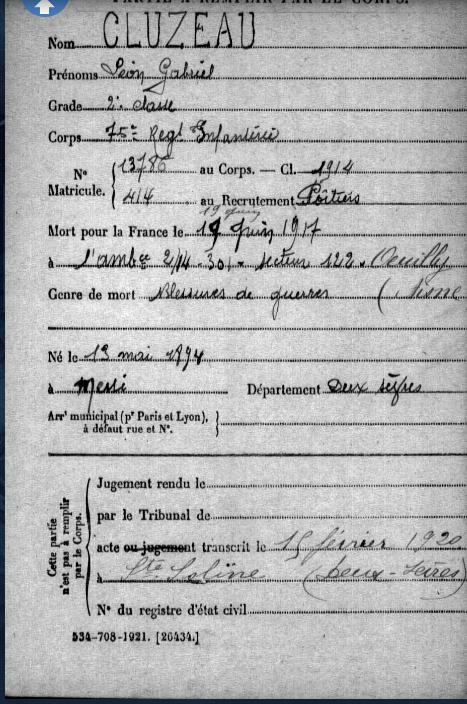 PARTIE À REMPLIR PAR LE CORPS.
Nom CLUZEAU
Prénoms Léon Gabriel
Grade 2e classe
Corps 75e Regt Infanterie
N° Matricule. 13786 au Corps. — Cl. 1914
414 au Recrutement Poitiers
19 juin
Mort pour la France le 19 Juin 1917
à l'ambce 2/14 - 301 - secteur 122. Oeuilly
Genre de mort Blessures de guerres (Aisne
Né le 13 mai 1894
à Messé Département Deux Sèvres
Arrt municipal (pr Paris et Lyon),
à défaut rue et N°.
Cette partie n'est pas à remplir par le Corps.
Jugement rendu le
par le Tribunal de
acte ou jugement transcrit le 15 février 1920
à Ste Soline (Deux-Sèvres)
N° du registre d'état civil
534-708-1921. [26434.]